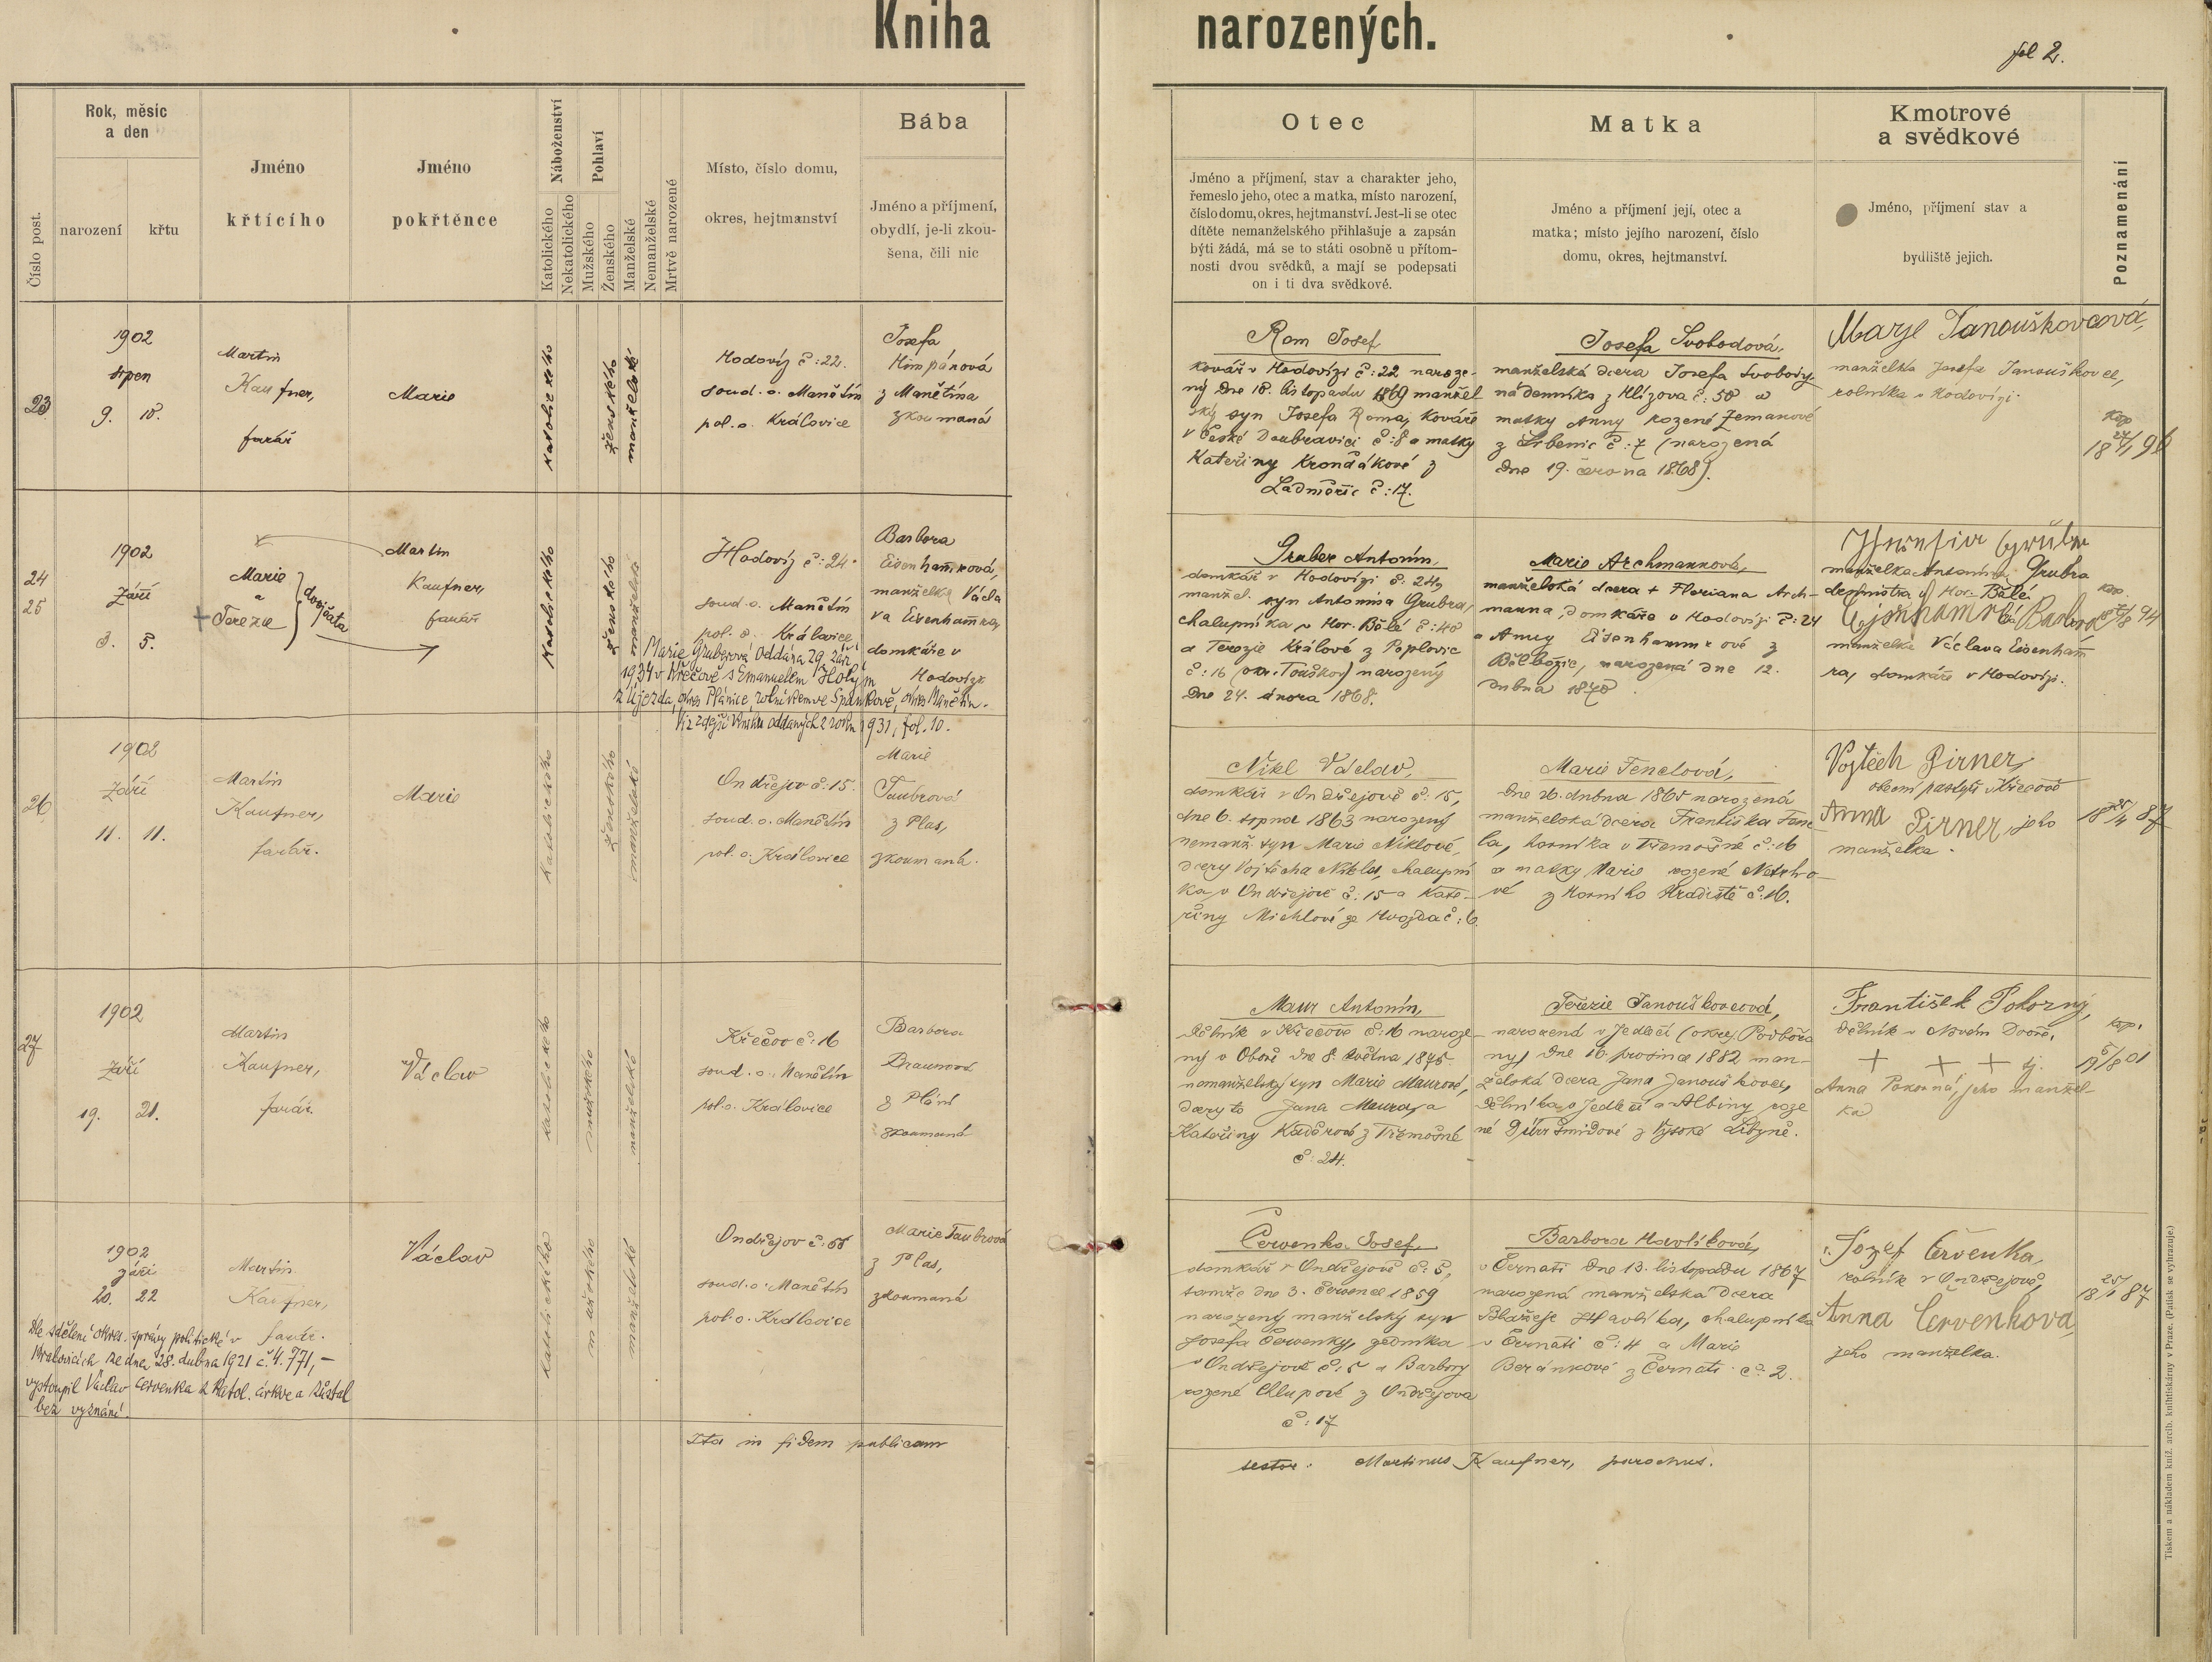 Kniha narozených.
fol 2.
Číslo post.
Rok, měsíc
a den
narození
křtu
Jméno
křtícího
Jméno
pokřtěnce
Náboženství
Katolického
Nekatolického
Pohlaví
Mužského
Ženského
Manželské
Nemanželské
Mrtvě narozené
Místo, číslo domu,
okres, hejtmanství
Bába
Jméno a příjmení,
obydlí, je-li zkou-
šena, čili nic
Otec
Jméno a příjmení, stav a charakter jeho,
řemeslo jeho, otec a matka, místo narození,
číslo domu, okres, hejtmanství. Jest-li se otec
dítěte nemanželského přihlašuje a zapsán
býti žádá, má se to státi osobně u přítom-
nosti dvou svědků, a mají se podepsati
on i ti dva svědkové.
Matka
Jméno a příjmení její, otec a
matka; místo jejího narození, číslo
domu, okres, hejtmanství.
Kmotrové
a svědkové
Jméno, příjmení stav a
bydliště jejich.
Poznamenání
23
1902
srpen
9. 10.
Martin
Kaufner,
farář
Marie
katolického
ženského
manželské
Hodovíz č: 22.
soud. o. Manětín
pol. o. Královice
Josefa
Himpánová
z Manětína
zkoumaná
Rom Josef
kovář v Hodovízi č: 22 naroze-
ný dne 18. listopadu 1869 manžel-
ský syn Josefa Roma, kováře
v České Doubravici č: 8 a matky
Kateřiny Krondákové z
Ladměřic č: 17.
Josefa Svobodová,
manželská dcera Josefa Svobody
nádenníka z Hlízova č: 50 a
matky Anny rozené Zemanové
z Srbenic č: 7 (narozená
dne 19. června 1868).
Marje Janouškovcová,
manželka Josefa Janouškovce,
rolníka v Hodovízi.
kop
18 27/1 96
24
25
1902
Září
3. 5.
Marie
a
+ Terezie
dvojčata
Martin
Kaufner,
farář
katolického
ženského
manželské
Hodovíz č: 24.
soud. o. Manětín
pol. o. Královice
Barbora
Eisenhamrová,
manželka Václa
va Eisenhamra,
domkáře v
Hodovízi
Marie Gruberová oddána 29. září
1934 v Křečově s Emanuelem Holým
z Újezda, okres Plánice, rolníkem ve Spankově, okres Manětín.
Viz zdejší knihu oddaných z roku 1931, fol. 10.
Gruber Antonín,
domkář v Hodovízi č: 24,
manžel. syn Antonína Grubra,
chalupníka v Hor. Bělé č: 40
a Terezie Králové z Toplovic
č: 16 (okr. Touškov) narozený
dne 24. února 1868.
Marie Archmannová,
manželská dcera + Floriana Arch-
manna, domkáře v Hodovízi č: 24
a Anny Eisenhammrové z
Bělbožic, narozená dne 12.
dubna 1870.
manželka Antonína Grubra
v Hor. Bělé
Barbora
manželka Václava Eisenham
ra, domkáře v Hodovízi.
kop.
94
26
1902
Září
11. 11.
Martin
Kaufner,
farář.
Marie
katolického
ženského
manželské
Ondřejov č: 15.
soud. o. Manětín
pol. o. Královice
Marie
Taubrová
z Plas,
zkoumaná.
Nikl Václav,
domkář v Ondřejově č: 15,
dne 6. srpna 1863 narozený
nemanž. syn Marie Niklové,
dcery Vojtěcha Nikla, chalupní
ka v Ondřejově č. 15 a Kate-
řiny Michlové ze Hvozda č: 6.
Marie Fenclová,
dne 26. dubna 1865 narozená
manželská dcera Františka Fenc
la, horníka v Třemošné č: 16
a matky Marie rozené Netrho-
vé z Horního Hradiště č: 16.
Vojtěch Pirner,
obecní pastýř v Křečově
Anna Pirner, jeho
manželka.
18 25/4 87
27
1902
Září
19. 21.
Martin
Kaufner,
farář.
Václav
katolického
mužského
manželské
Křečov č: 16
soud. o. Manětín
pol. o. Královice
Barbora
Braunová
z Plání
zkoumaná
Maur Antonín,
dělník v Křečově č: 16 naroze-
ný v Oboře dne 8. května 1875
nemanželský syn Marie Maurové,
dcery to Jana Maura, a
Kateřiny Kadorové z Třemošné
č: 24.
Terezie Janouškovcová,
narozená v Jedlčí (okres Podbořa
ny) dne 16. prosince 1882 man-
želská dcera Jana Janouškovce,
dělníka v Jedlčí a Albiny roze
né Dürršmidové z Vysoké Libyně.
František Pokorný,
dělník v Novém Dvoře,
+ + + tj.
Anna Pokorná, jeho manžel-
ka
kop.
19 5/8 01
1902
září
20. 22
Martin
Kaufner,
farář.
Václav
katolického
mužského
manželské
Ondřejov č: 55
soud. o. Manětín
pol. o. Královice
Marie Taubrová
z Plas,
zkoumaná
Dle sdělení okres. správy politické v
Kralovicích ze dne 28. dubna 1921 č. 4.771,-
vystoupil Václav Červenka z katol. církve a zůstal
bez vyznání.
Červenka Josef,
domkář v Ondřejově č: 5,
tamže dne 3. července 1859
narozený manželský syn
Josefa Červenky, zedníka
v Ondřejově č: 5 a Barbory
rozené Chlupové z Ondřejova
č: 17
Barbora Havlíková,
v Černati dne 13. listopadu 1867
narozená manželská dcera
Blažeje Havlíka, chalupníka
v Černati č: 4 a Marie
Beránkové z Černati č: 2.
Jozef Červenka,
rolník v Ondřejově,
Anna Červenkova,
jeho manželka.
18 25/1 87
Ita in fidem publicam
testor. Martinus Kaufner, parochus.
Tiskem a nákladem kníž. arcib. knihtiskárny v Praze. (Patisk se vyhrazuje.)